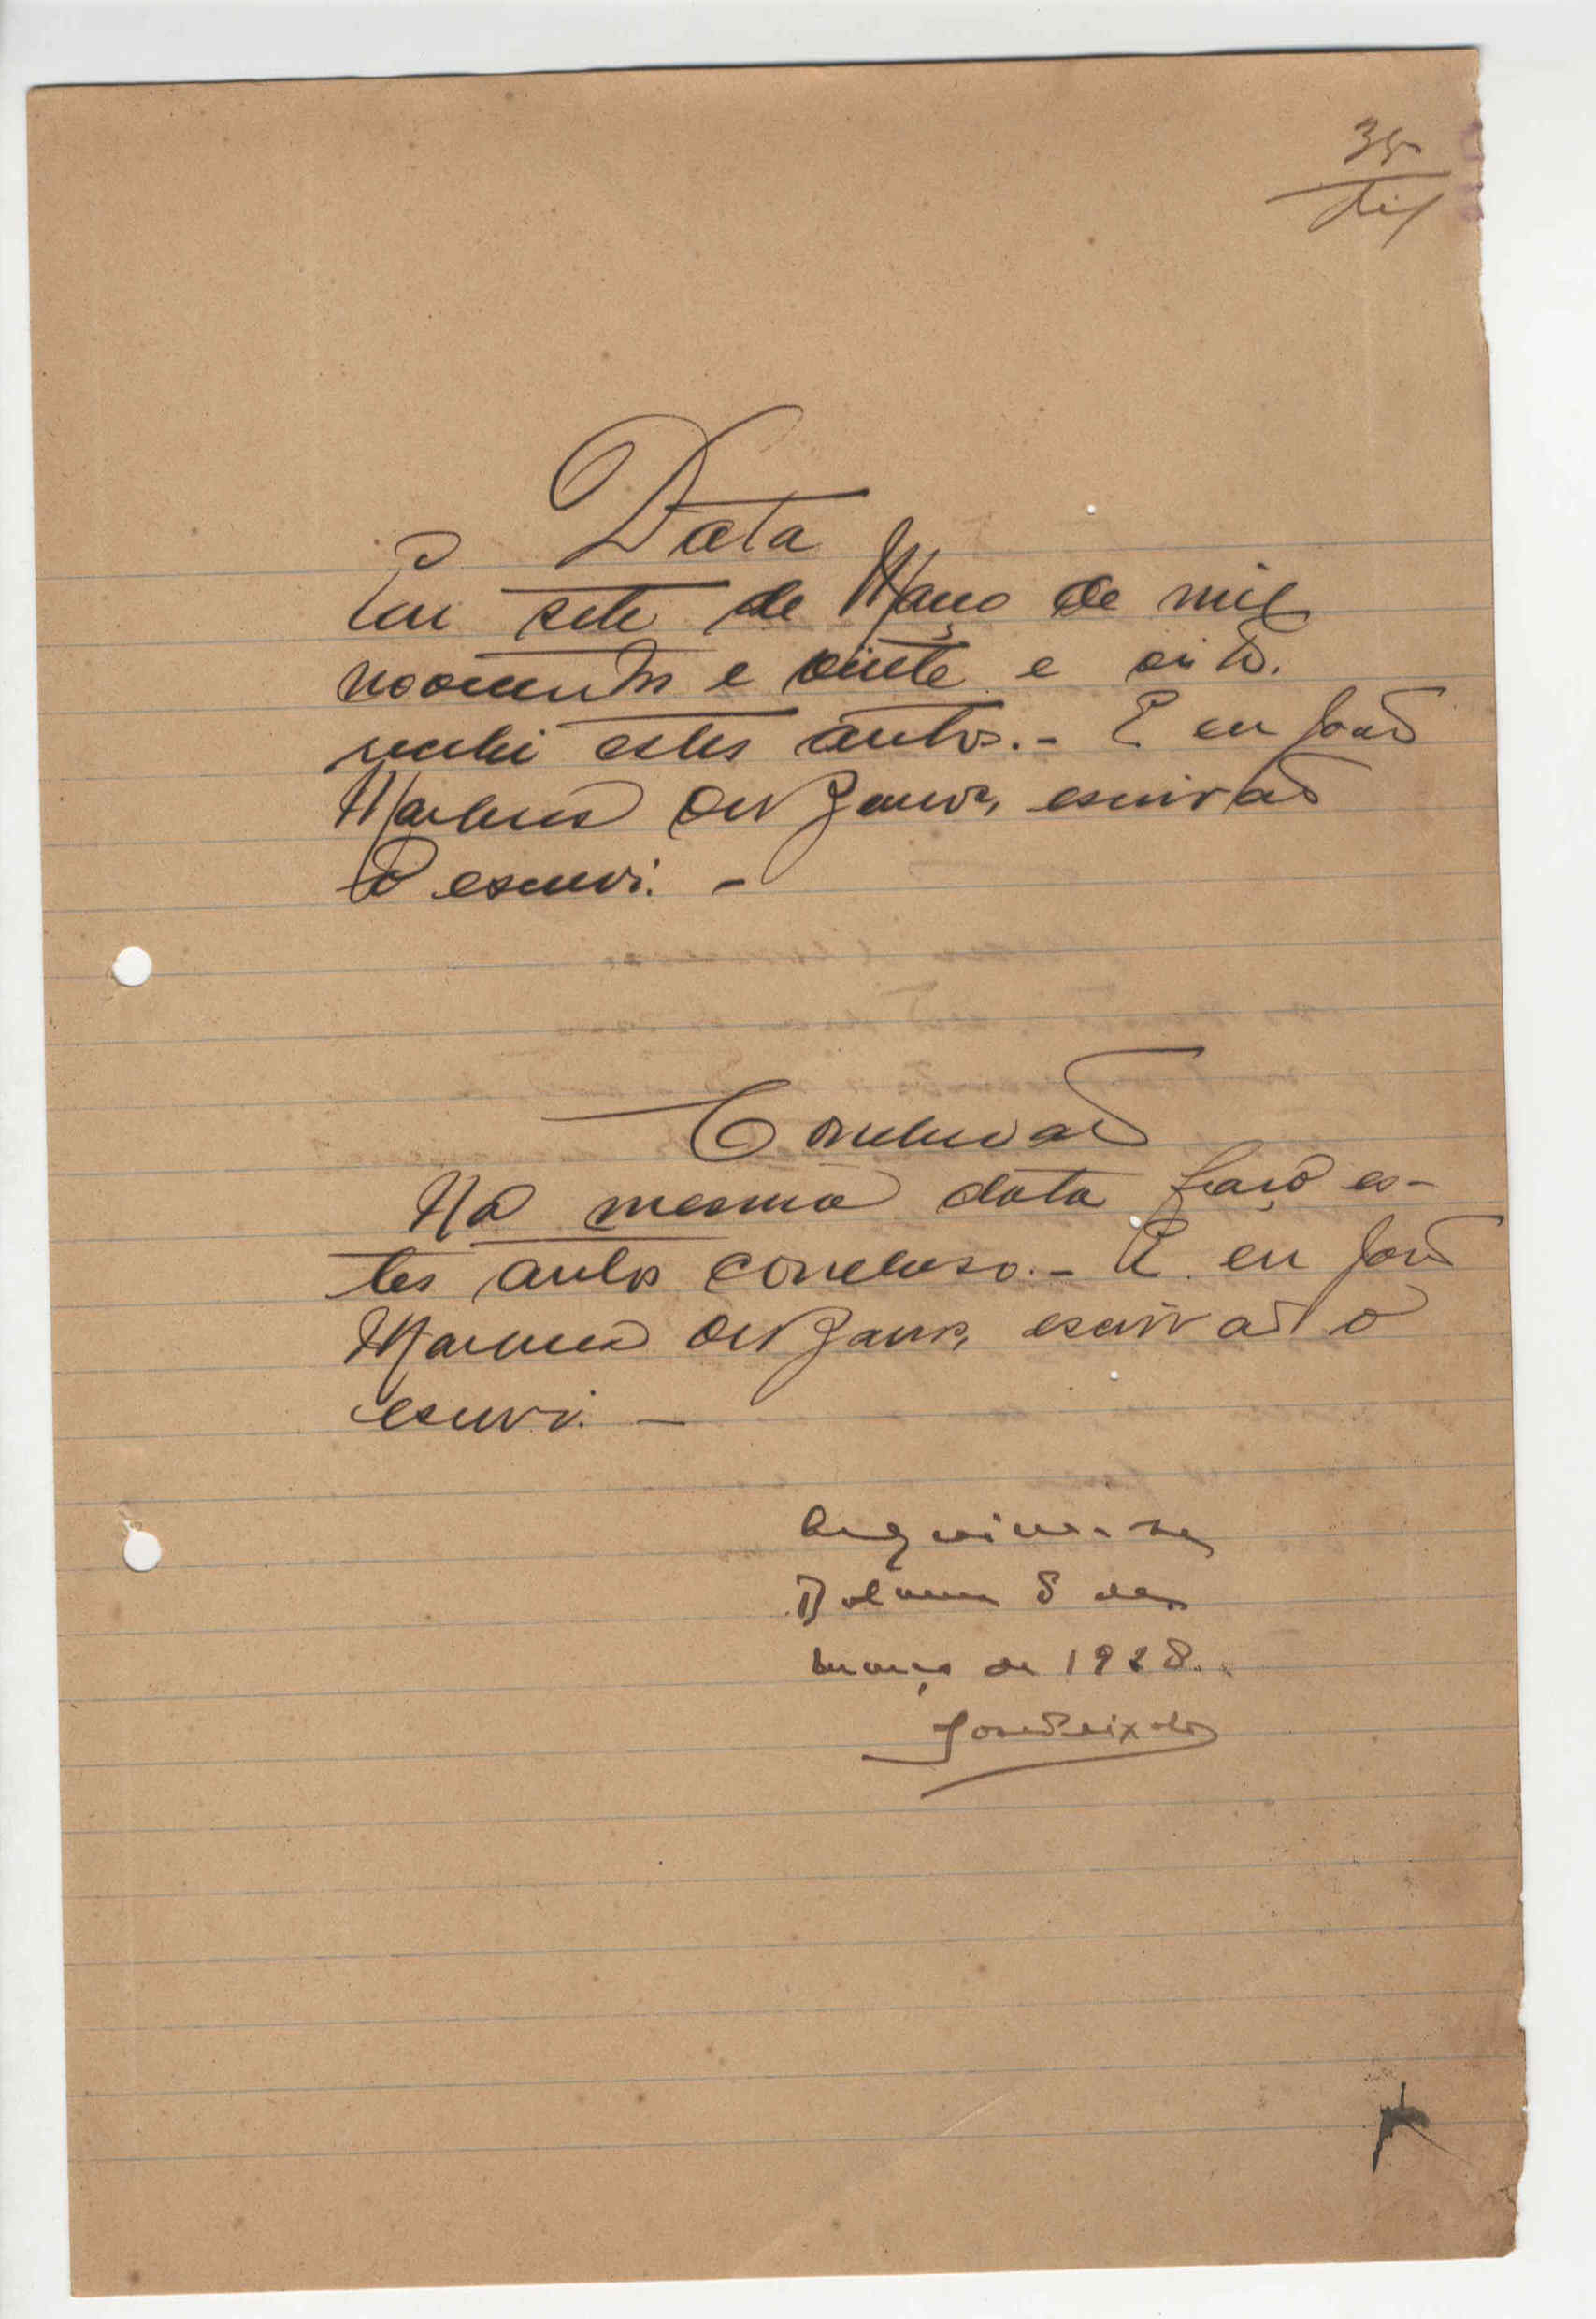 35
Data
Em sete de Março de mil
novecentos e vinte e oito.
recebi estes autos. - E eu João
escrivão
o escrevi. -
Conclusão
Na mesma data faço es-
tes autos concluso. - E eu João
escrivão o
escrevi. -
Archive-se
8 de
março de 1928.
José Peixoto